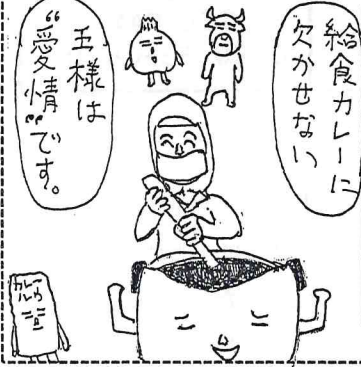 給食カレーに
欠かせない
王様は
“愛情”です。
カレー
ルウ